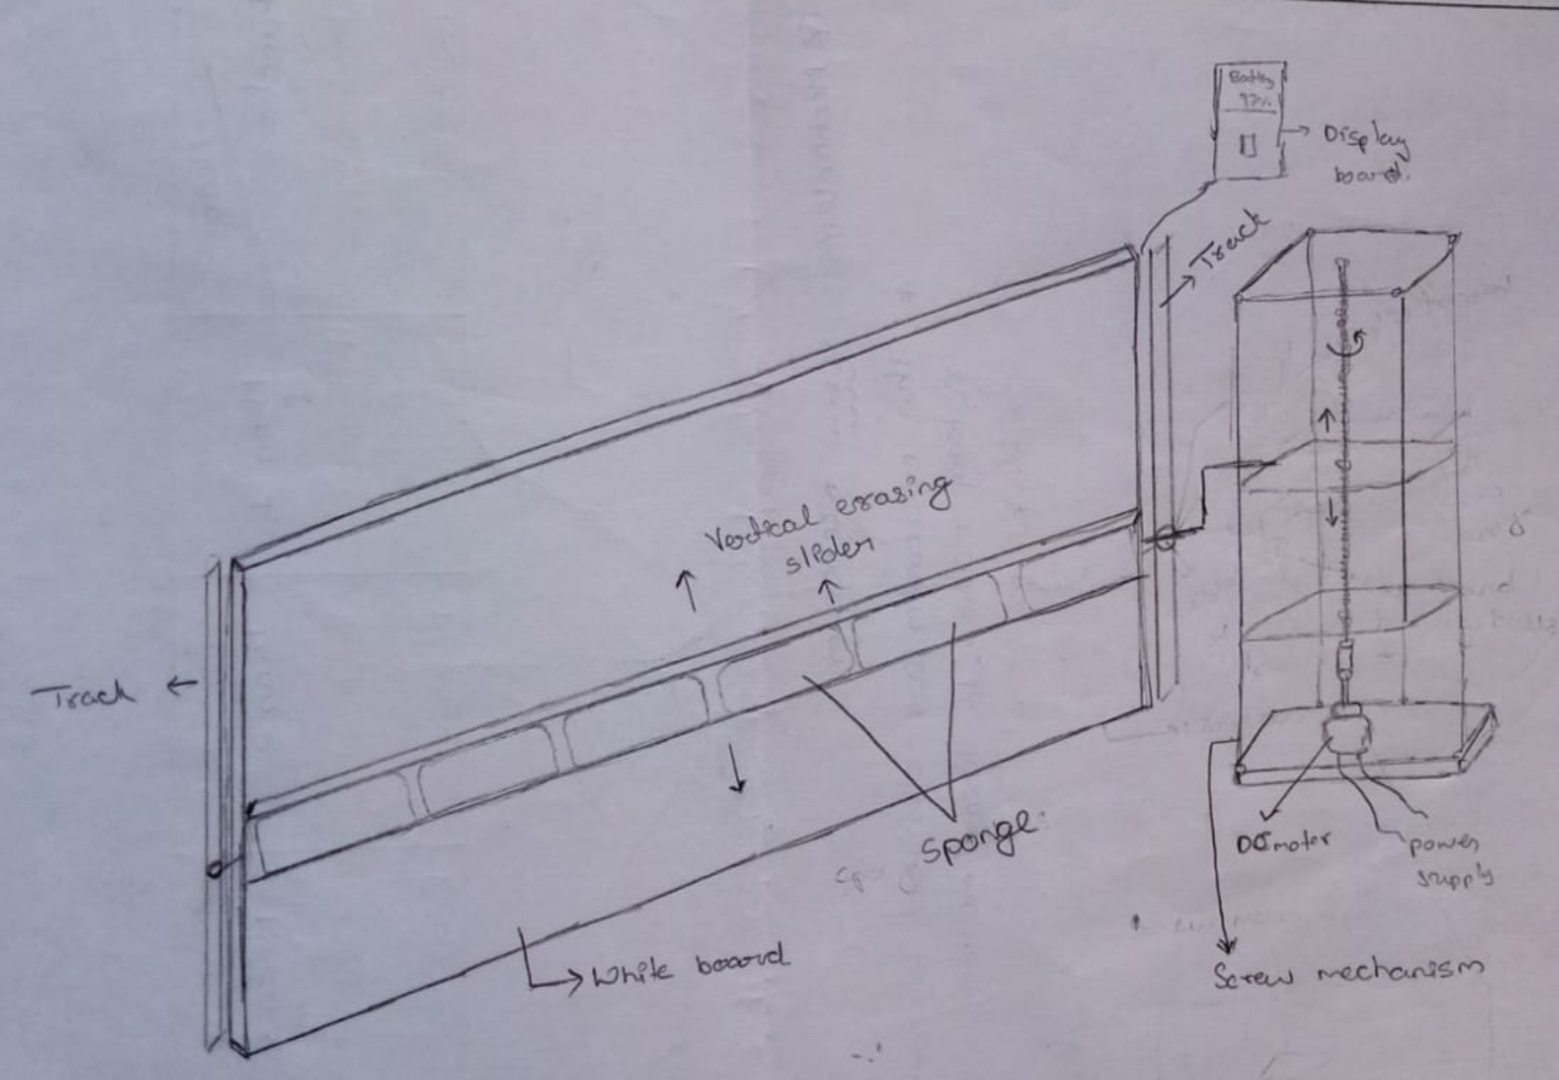 Battery
97%
Display
board.
Track
Vertical erasing
slider
Track
Sponge
DC motor
power
supply
White board
Screw mechanism